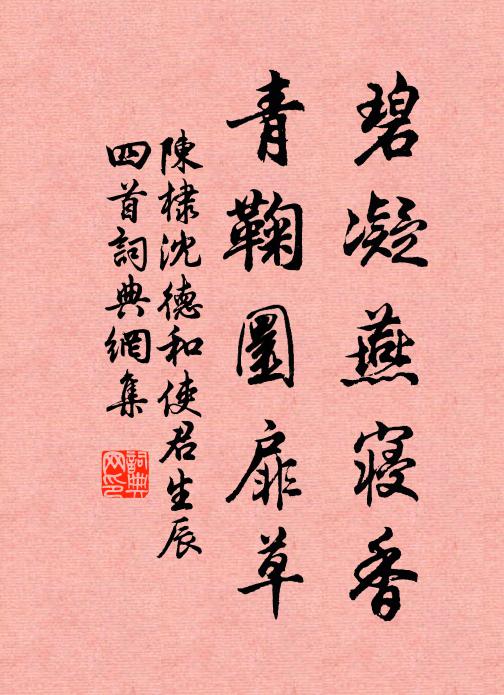 碧凝燕寝香
青鞠圄扉草
陳棣沈德和使君生辰
四首詞典網集
詞典网印